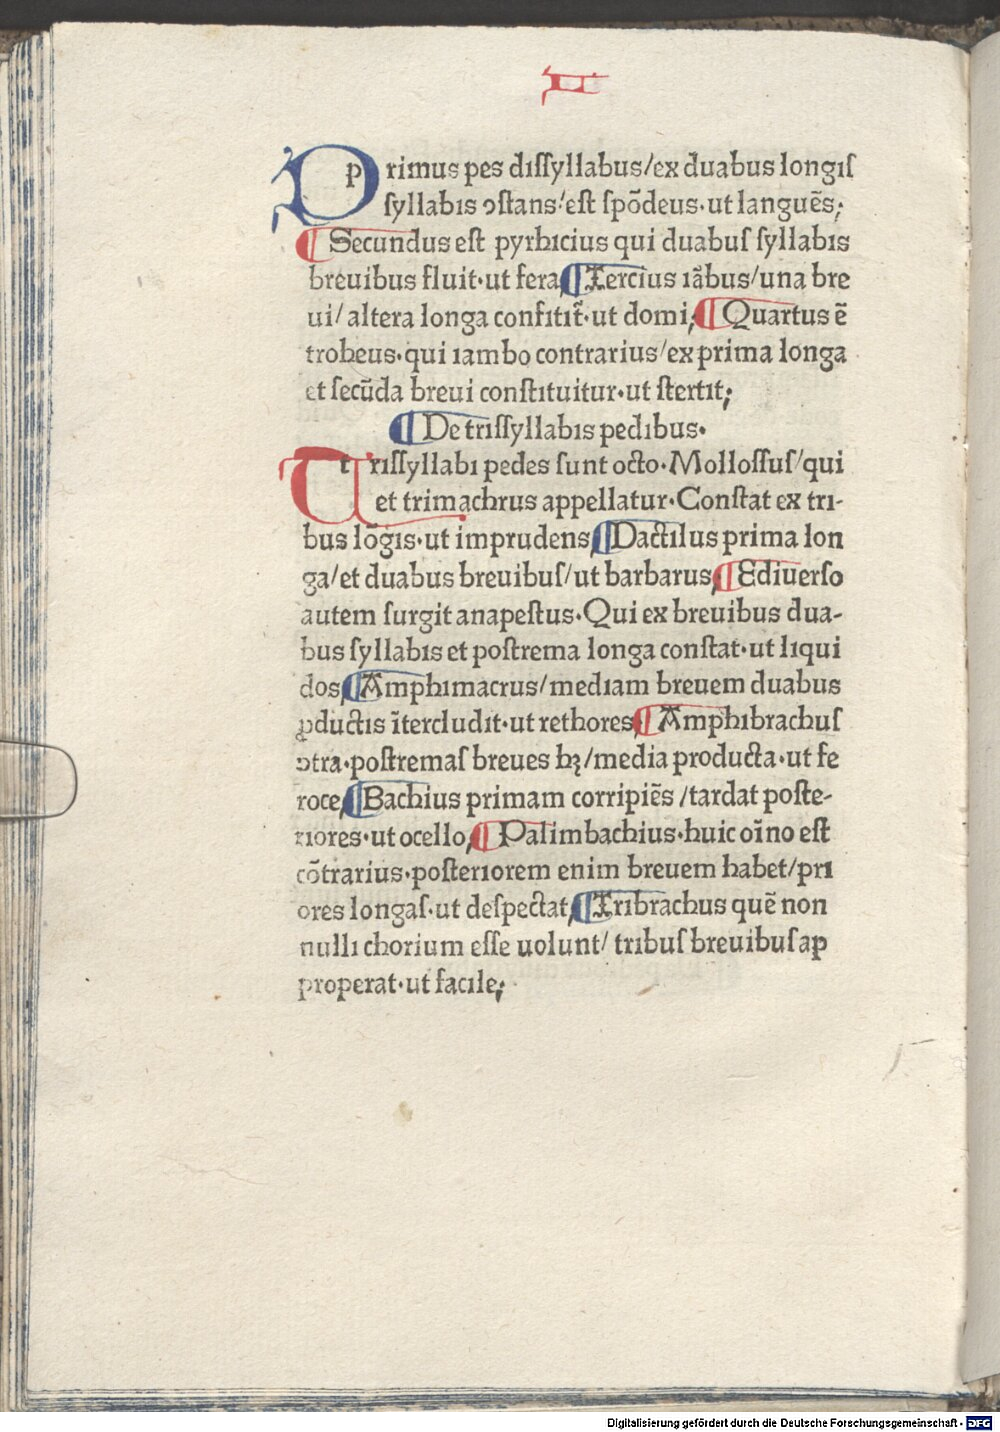 II
Primus pes dissyllabus/ex duabus longis
syllabis ↄstans/est spōdeus·ut languēs;
¶ Secundus est pyrhicius qui duabus syllabis
breuibus fluit·ut fera ¶ Tercius iābus/una bre
ui/altera longa confitit̄·ut domi; ¶ Quartus ē
troheus·qui iambo contrarius/ex prima longa
et secūda breui constituitur·ut stertit;
¶ De trissyllabis pedibus·
Trissyllabi pedes sunt octo·Molossus/qui
et trimachrus appellatur·Constat ex tri-
bus lōgis·ut imprudens ¶ Dactilus prima lon
ga/et duabus breuibus/ut barbarus; ¶ Ediuerso
autem surgit anapestus·Qui ex breuibus dua-
bus syllabis et postrema longa constat·ut liqui
dos; ¶ Amphimacrus/mediam breuem duabus
ꝓductis ītercludit·ut rethores ¶ Amphibrachus
ↄtra·postremas breues hꝫ/media producta·ut fe
roce; ¶ Bachius primam corripiēs/tardat poste-
riores·ut ocello; ¶ Palimbachius·huic oīno est
cōtrarius·posteriorem enim breuem habet/pri
ores longas·ut despectat; ¶ Tribrachus quē non
nulli chorium esse uolunt/tribus breuibus ap
properat·ut facile;
Digitalisierung gefördert durch die Deutsche Forschungsgemeinschaft - DFG